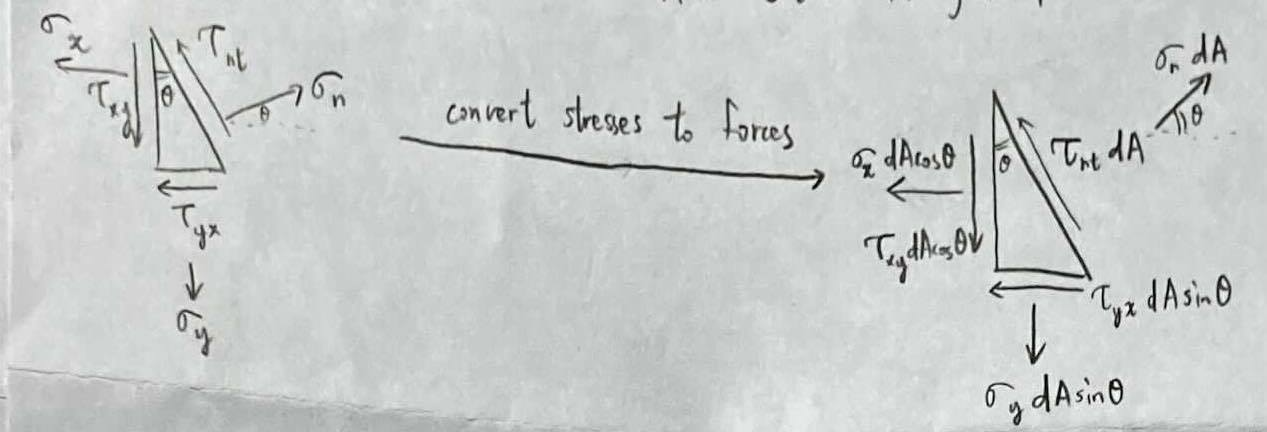 σx
τnt
τxy
θ
σn
θ
τyx
σy
convert stresses to forces
σn dA
θ
τnt dA
θ
σx dAcosθ
τxy dAcosθ
τyx dAsinθ
σy dAsinθ